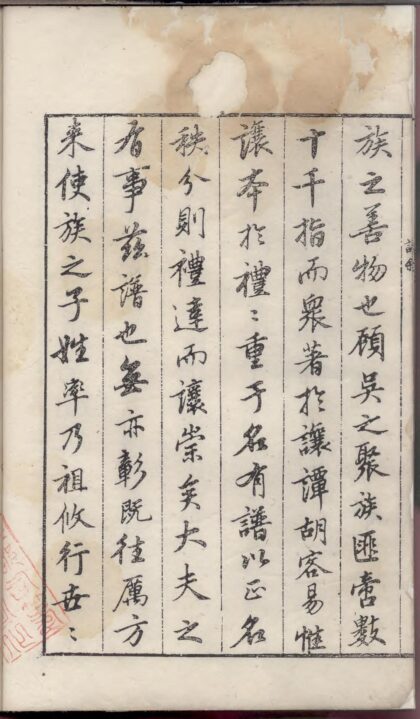 族之善物也顧吳之聚族匪啻數
十千指而眾著扵讓譚胡容易惟
讓本扵禮〻重于名有譜以正名
秩分則禮達而讓崇矣大夫之
有事茲譜也無亦彰既徃厲方
來使族之子姓率乃祖攸行世〻